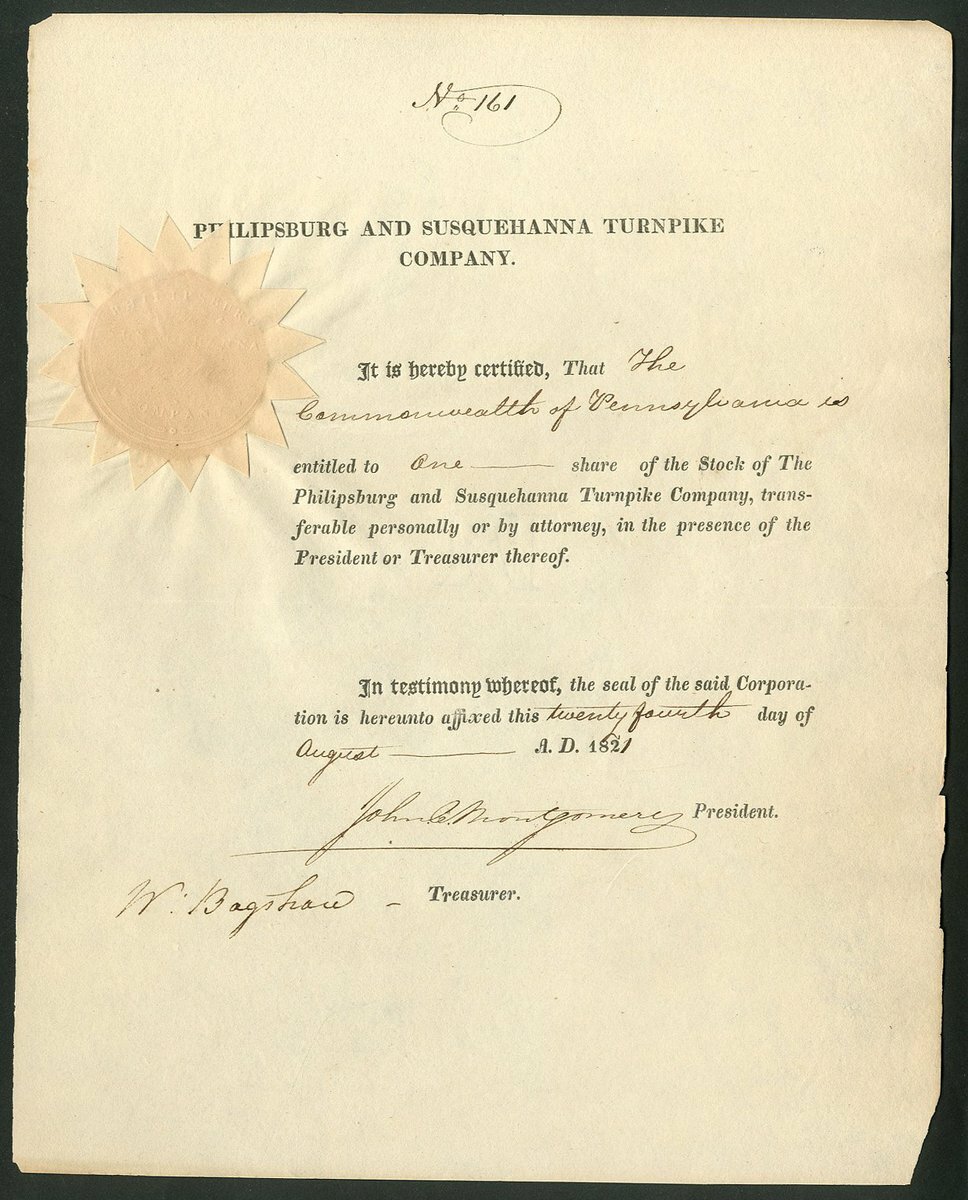 No 161
PHILIPSBURG AND SUSQUEHANNA TURNPIKE
COMPANY.
It is hereby certified, That The
Commonwealth of Pennsylvania is
entitled to One share of the Stock of The
Philipsburg and Susquehanna Turnpike Company, trans-
ferable personally or by attorney, in the presence of the
President or Treasurer thereof.
In testimony whereof, the seal of the said Corpora-
tion is hereunto affixed this twenty fourth day of
August A. D. 1821
John C Montgomery President.
W. Bagshaw - Treasurer.